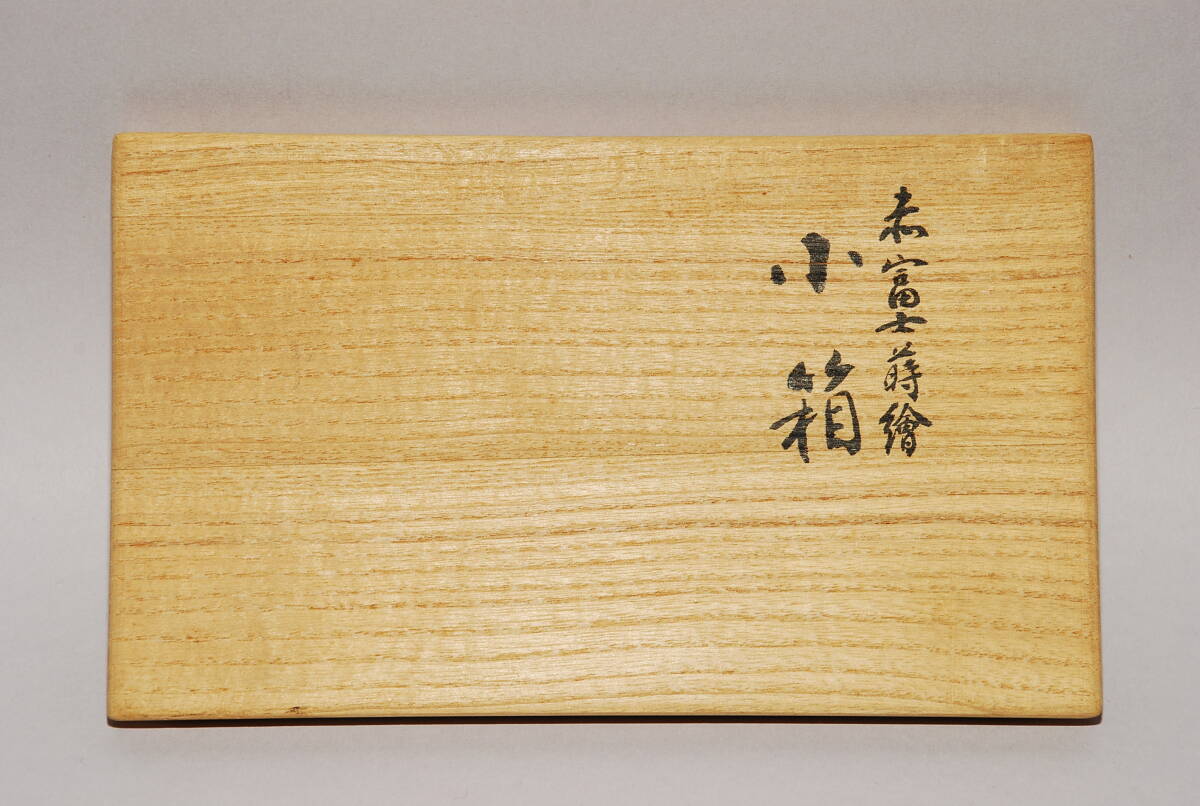 赤富士蒔繪
小箱